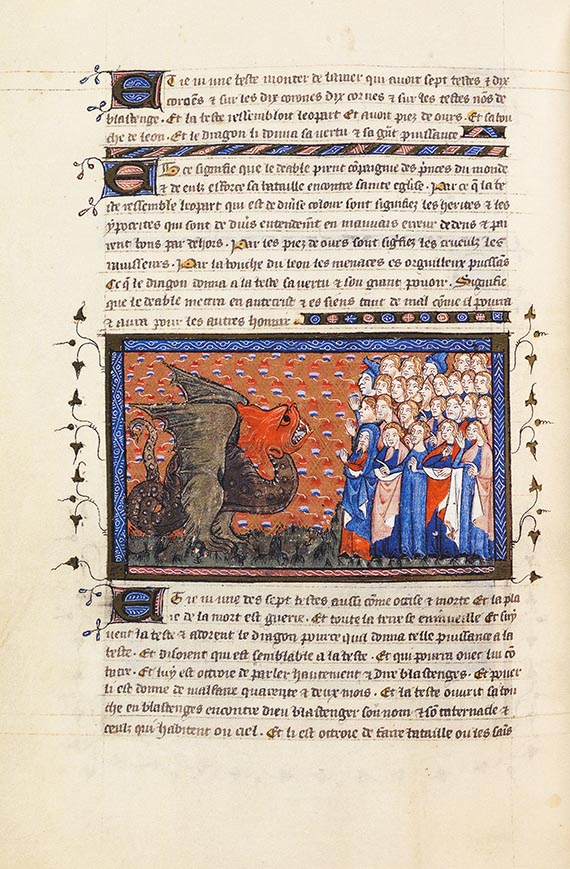 Et ie ui une beste monter de la mer qui auoit sept testes ⁊ dix
cornes ⁊ sur les dix cornes dix corones ⁊ sur les testes nōs de
blasfenge . Et la beste ressembloit leopart Et auoit piez de ours . Et sa bou
che de leon . Et le dragon li donna sa uertu ⁊ sa gñt puissance
Et ce signifie que le deable prent cōpaignie des p̄nces du monde
⁊ de eulz efforce sa bataille encontre sainte eglise . Par ce q̄ la be
ste ressemble leopart qui est de diuse colour sont signifiez les herites ⁊ les
ypocrites qui sont de diu̾s entendemēt en mauuais erreur dedens ⁊ pa
rent bons par dehors . Par les piez de ours sont sig̾fiez les crueulz les
rauisseurs . Par la bouche du leon les menaces es orguilleux puissans
Ce q̄ le dragon donna a la beste sa uertu ⁊ son grant pouoir . Signifie
que le deable mettra en antecrist ⁊ es siens tant de mal cōme il pourra
⁊ aura pour les autres honnir
Et ie ui une des sept testes aussi cōme occise ⁊ morte Et la pla
ie de la mort est guerie . Et toute la terre se emerueille Et siuy
uent la beste ⁊ adorent le dragon pource quil donna telle puissance a la
beste . Et disoient qui est semblable a la beste . Et qui pourra ouec lui cō
batre . Et luy est octroie de parler hautement ⁊ dire blasfenges . Et pouer
li est donne de malfaire quarente ⁊ deux mois . Et la beste ouurit sa bou
che en blasfenges encontre dieu blasfenger son nom ⁊ sō tabernacle ⁊
ceulz qui habitent ou ciel . Et li est octroie de faire bataille ou les sais